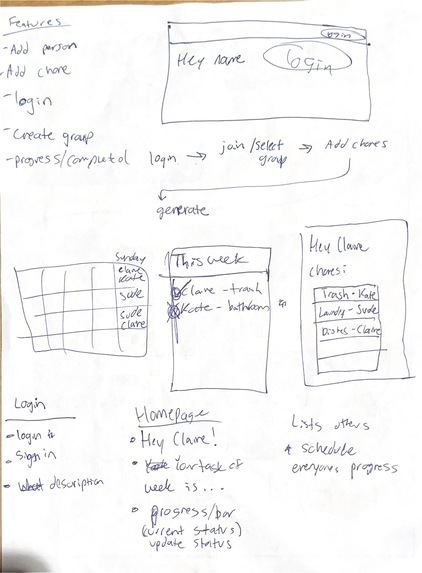 Features
- Add person
- Add chore
- login
- Create group
- progress/completed
login
Hey name
Login
login → join/select group → Add chores
generate
Sunday
Kate
Sude
Sude
Claire
This week
Claire - trash
Kate - bathroom
Hey Claire
chores:
Trash - Kate
Laundry - Sude
Dishes - Claire
Login
• login
• Sign in
• description
Homepage
• Hey Claire!
• Your task of
week is ...
• progress/bar
(current status)
update status
Lists others
* schedule
everyones progress